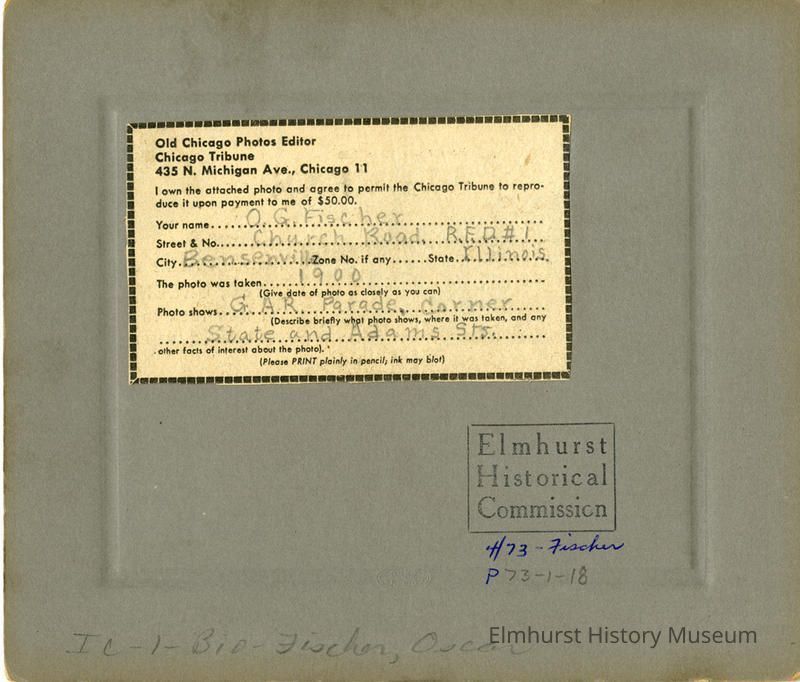 Old Chicago Photos Editor
Chicago Tribune
435 N. Michigan Ave., Chicago 11
I own the attached photo and agree to permit the Chicago Tribune to repro-
duce it upon payment to me of $50.00.
Your name O. G. Fischer
Street & No. Church Road, R.F.D#1
City Bensenville Zone No. if any State Illinois
The photo was taken 1900
(Give date of photo as closely as you can)
Photo shows G. A. R. Parade, corner
(Describe briefly what photo shows, where it was taken, and any
State and Adams Sts.
other facts of interest about the photo).
(Please PRINT plainly in pencil; ink may blot)
Elmhurst
Historical
Commission
#73 - Fischer
P 73-1-18
I C-1-Bio-Fischer, Oscar
Elmhurst History Museum